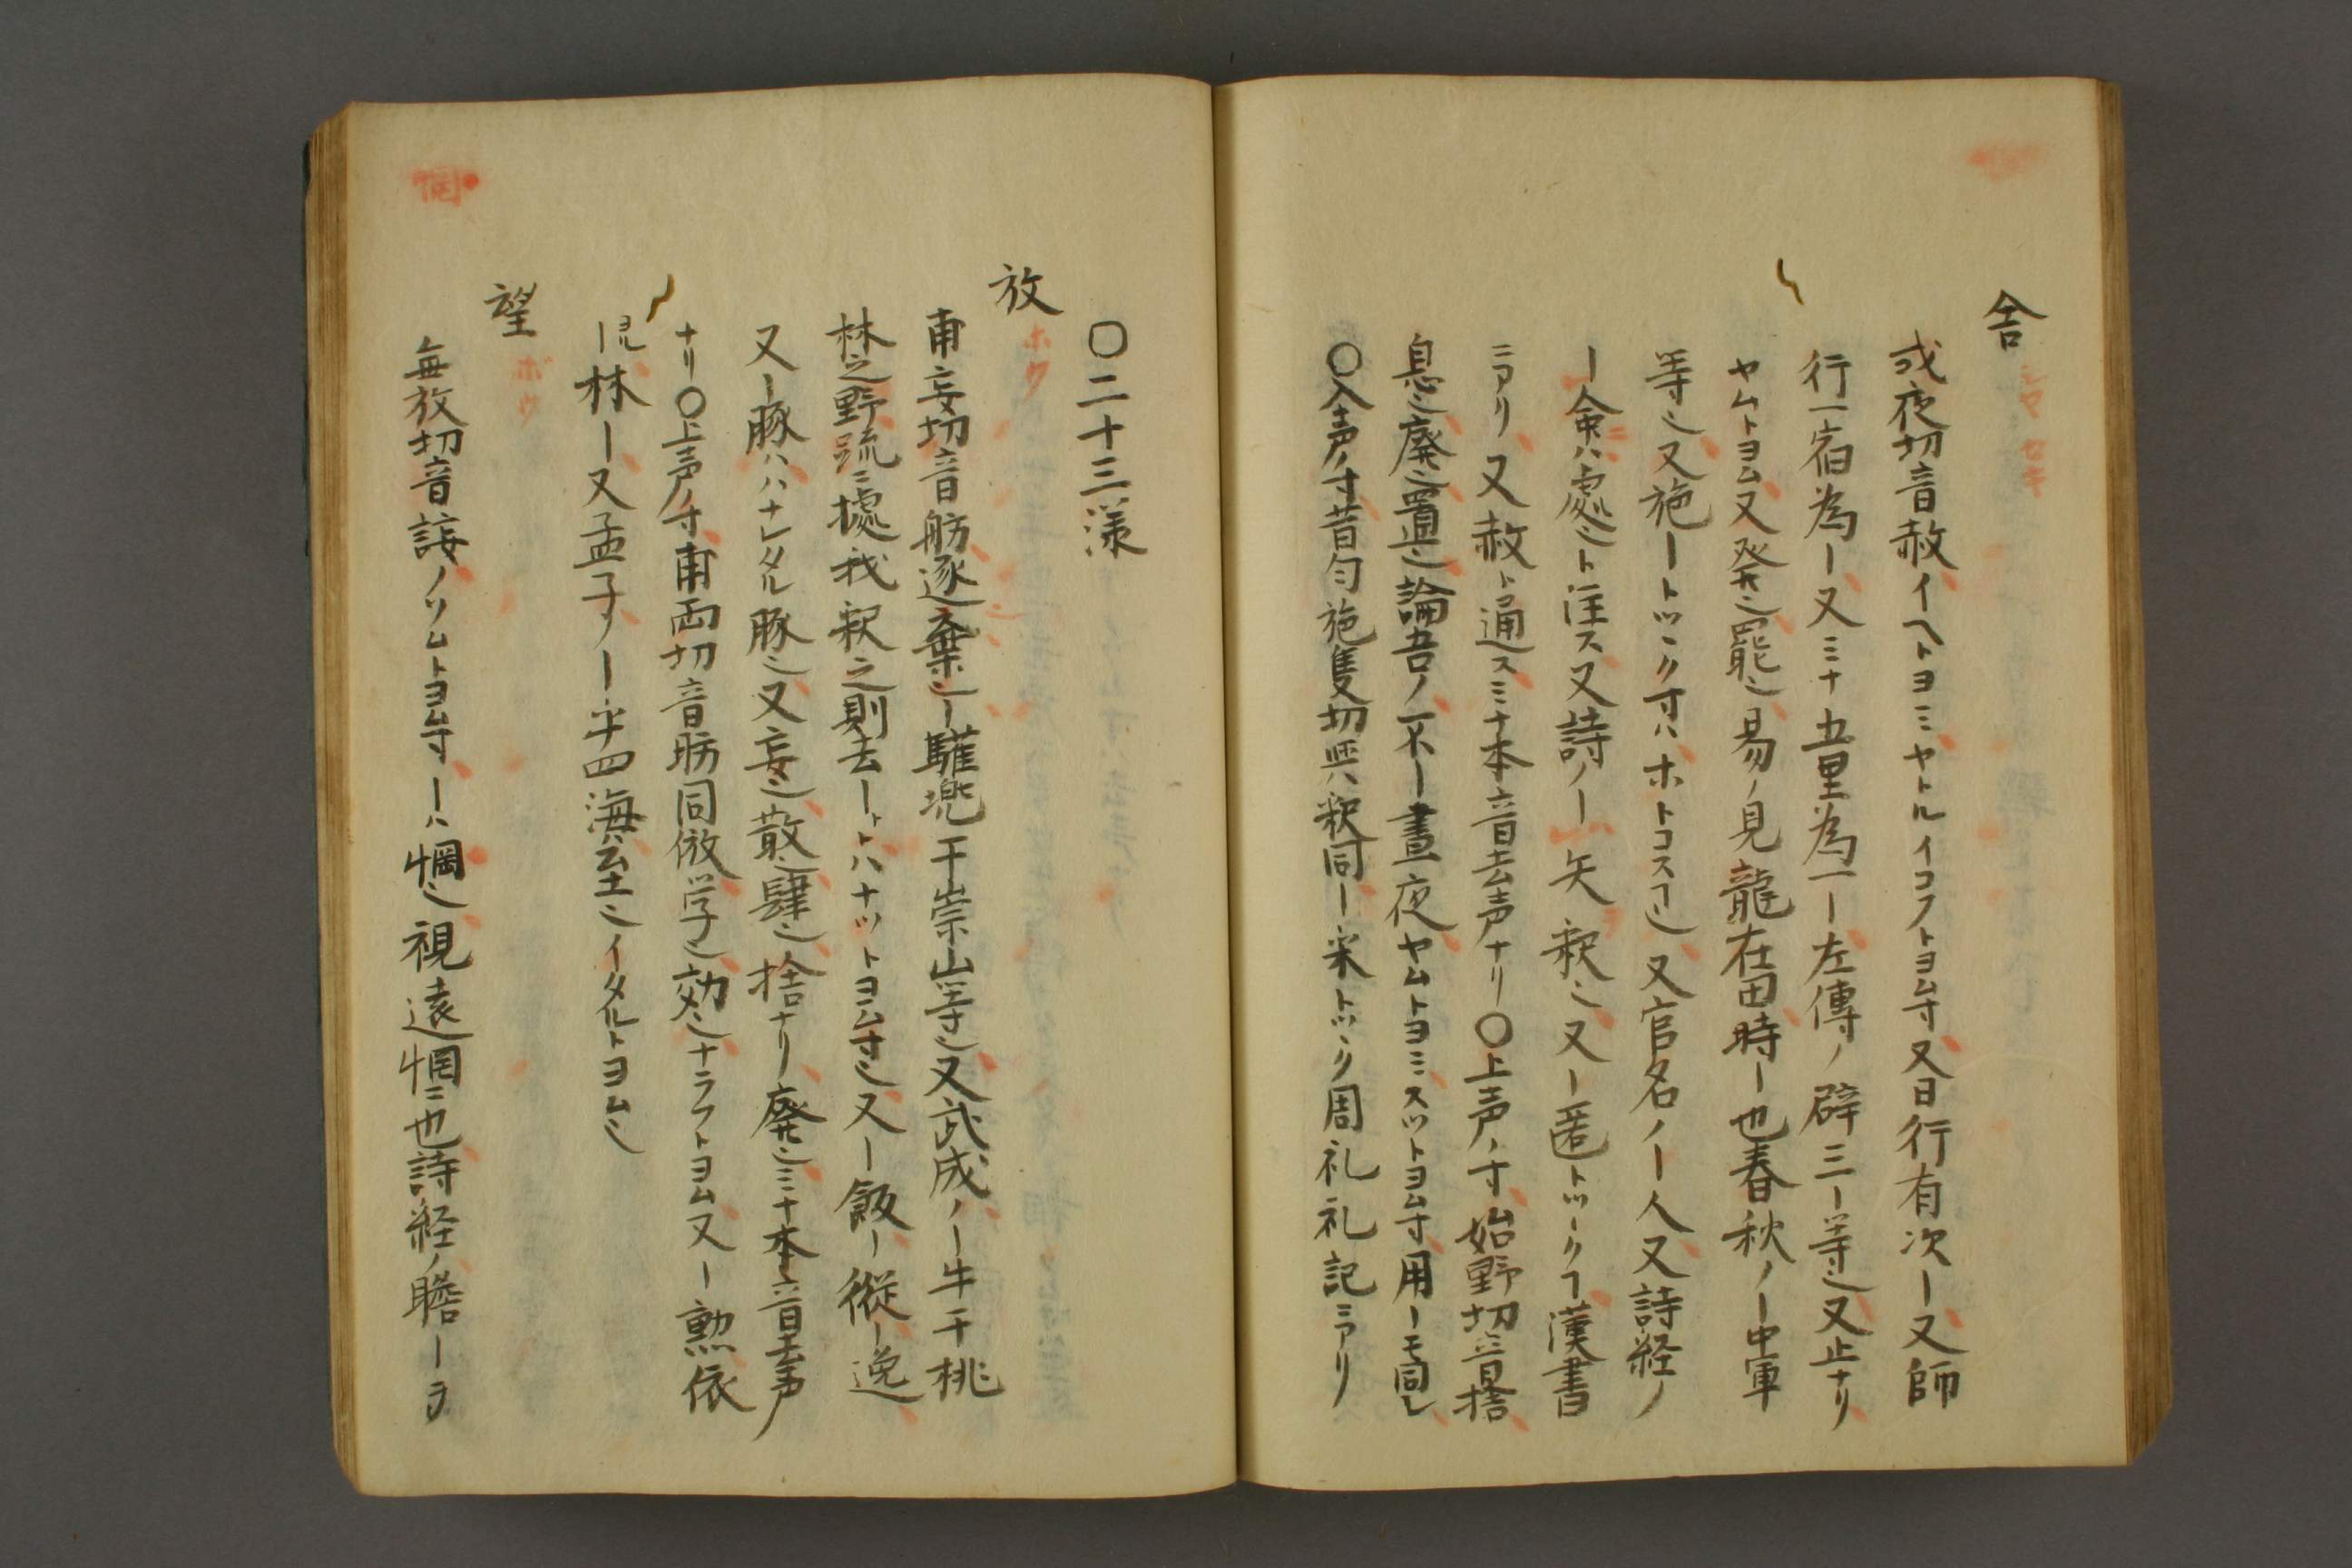 舎
シヤ セキ
或夜切音赦イヘトヨミヤトルイコフトヨム寸又日行有次ー又師
行一宿為ー又ミナ五里為一ー左傳ノ辟三ー等也又止ナリ
ヤムトヨム又発也罷也易ノ見龍在田時ー也春秋ノー中軍
等也又施ートツヽク寸ハホトコスヿ也又官名ノー人又詩経ノ
ー命ハ處也ト注ス又詩ノー矢釈也又ー匿トツヽクヿ漢書
ニアリ又赦ト通スミナ本音去声ナリ〇上声ノ寸始野切音捨
息也廃也置也論吾ノ不ー晝夜ヤムトヨミスツトヨム寸用ーモ同シ
〇入声ノ寸昔匀施隻切與釈同ー采トツヽク周礼礼記ニアリ
〇二十三漾
放
ホウ
甫妄切音舫逐也棄也ー驩兜于崇山等也又武成ノー牛于桃
林之野疏ニ據我釈之則去ートハナツトヨム寸也又ー飯ー縦ー逸
又ー豚ハハナレタル豚也又妄也散也肆也捨ナリ廃也ミナ本音去声
ナリ〇上声ノ寸甫両切音昉同倣学也効也ナラフトヨム又ー勲依
ヨル林ー又孟子ノー乎四海ハ至也イタルトヨム也
望
ボウ
無放切音𧩪ノソムトヨム寸ーハ惘也視遠惘ニ也詩経ノ瞻ーヲ
惘